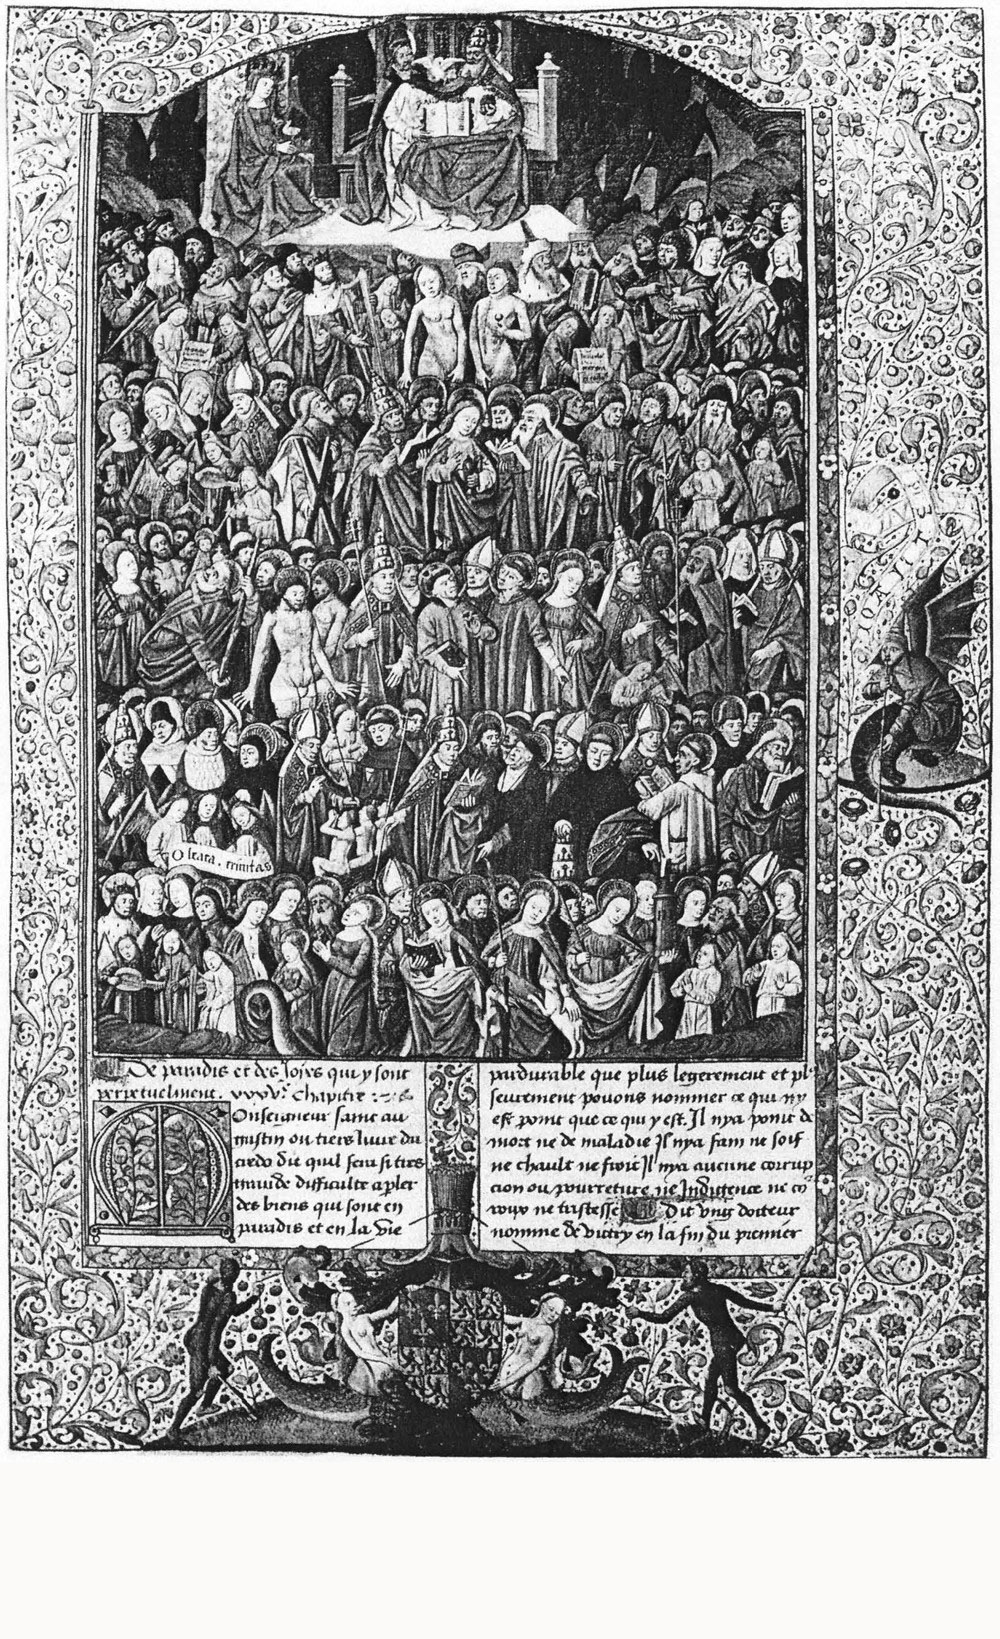 O beata . trinitas
De paradis et des Joyes qui y sont
perpetuelment. Chapitre
Onseigneur saint au
gustin ou tiers livre du
credo dit quil seuffit tres
grande difficulte a pler
des biens qui sont en
paradis et en la vie
pardurable que plus legerement et pl9
seurement povons nommer ce qui ny
est point que ce qui y est. Il nya point de
mort ne de maladie Il nya fain ne soif
ne chault ne froit Il nya aucune corrup
cion ou pourreture ne Indigence ne co
roux ne tristesse Dit ung docteur
nomme de vitry en la fin du premier